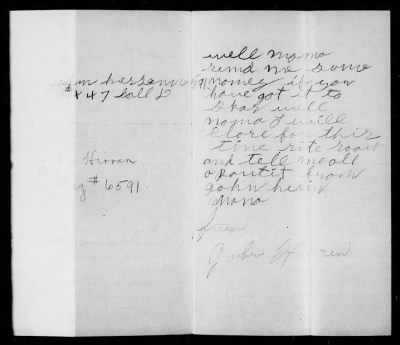 # 47 ball
Hirren
# 6591
well mama
send me some
money if you
have got it to
spar well
moma I will
close for this
time rite soon
and tell me all
about it from
john hirin
Mama
from
John Hirren